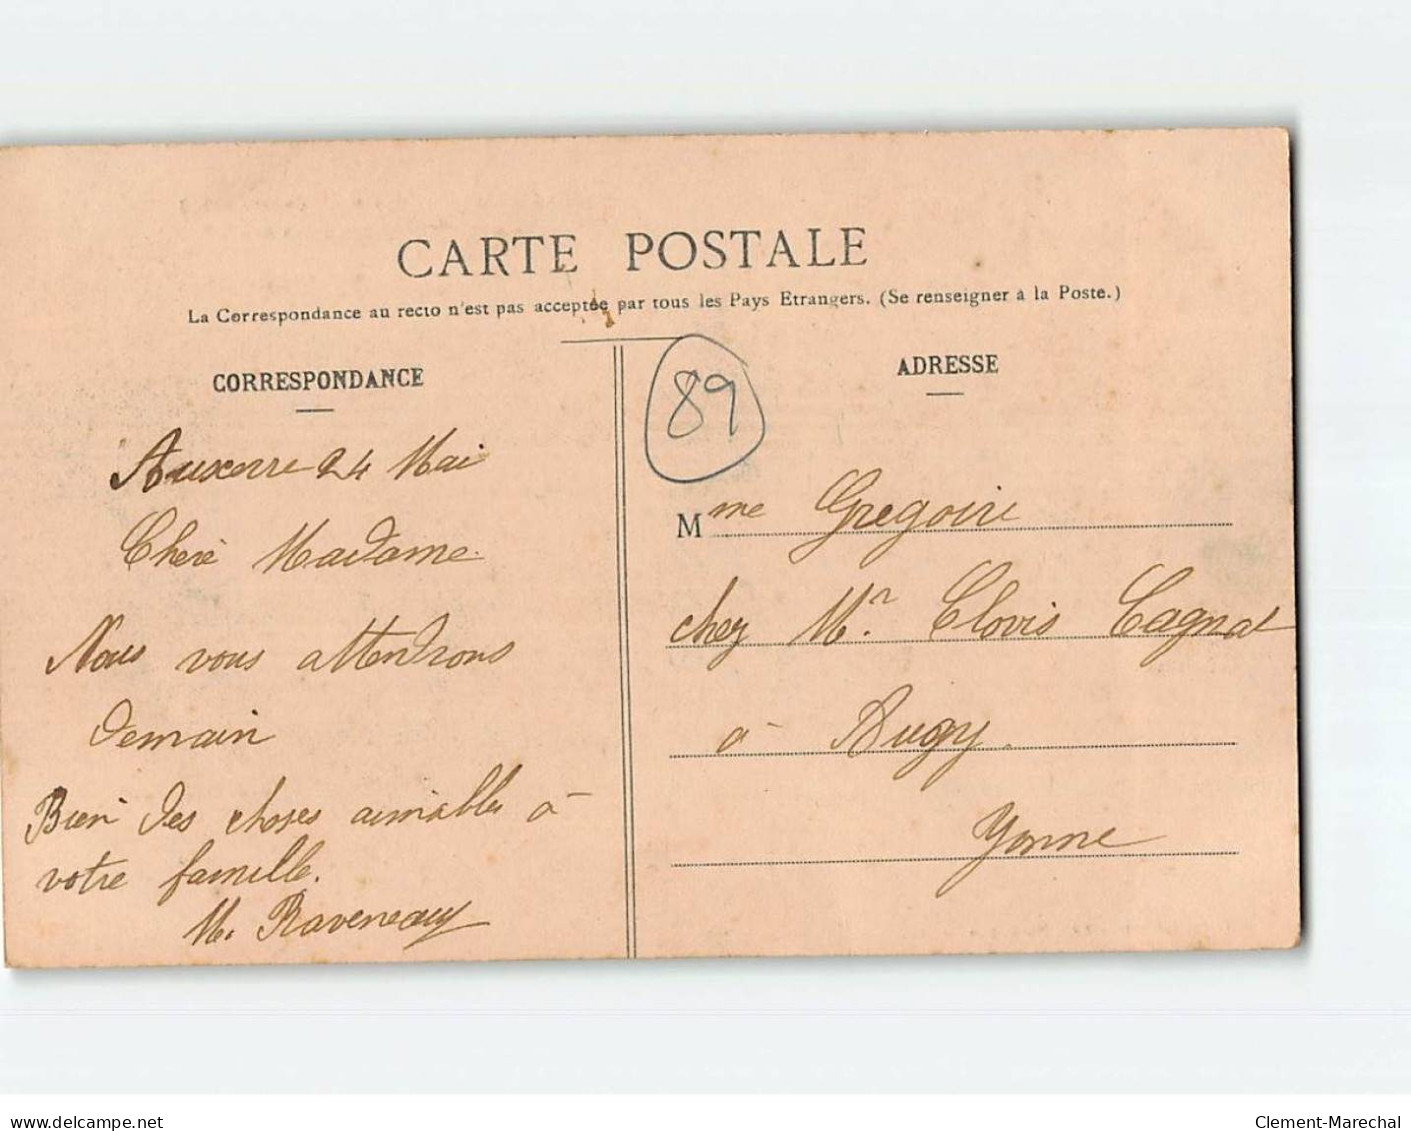 CARTE POSTALE
La Correspondance au recto n'est pas acceptée par tous les Pays Etrangers. (Se renseigner à la Poste.)
CORRESPONDANCE
Auxerre 24 Mai
Chere Madame.
Nous vous attendrons
demain
Bien des choses aimables à
votre famille.
M. Raveneau
89
ADRESSE
Mme Gregoire
chez Mr. Clovis Cagnat
à Augy.
Yonne
delcampe.net
Clement-Marechal